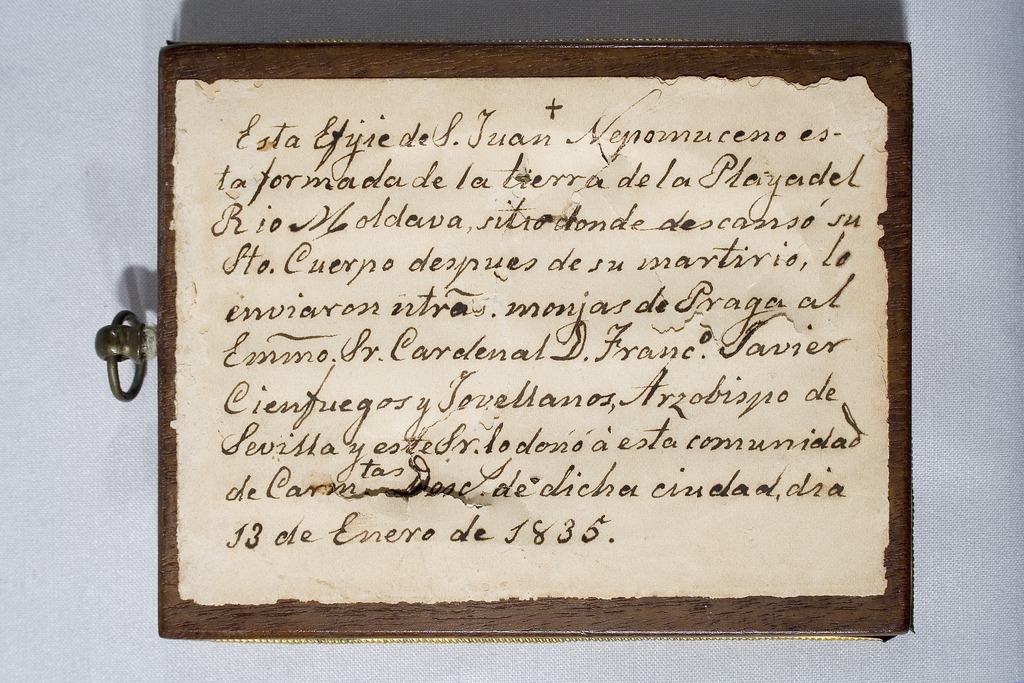 +
Esta Efijie de S. Juan Nepomuceno es-
ta formada de la tierra de la Playa del
Rio Moldava, sitio donde descansó su
Sto. Cuerpo despues de su martirio, lo
enviaron ntrās. monjas de Praga al
Em̃mo. Sr. Cardenal D. Francº. Javier
Cienfuegos y Jovellanos, Arzobispo de
Sevilla y este Sr. lo donó à esta comunidad
de Carmtas Desc. de dicha ciudad, dia
13 de Enero de 1835.